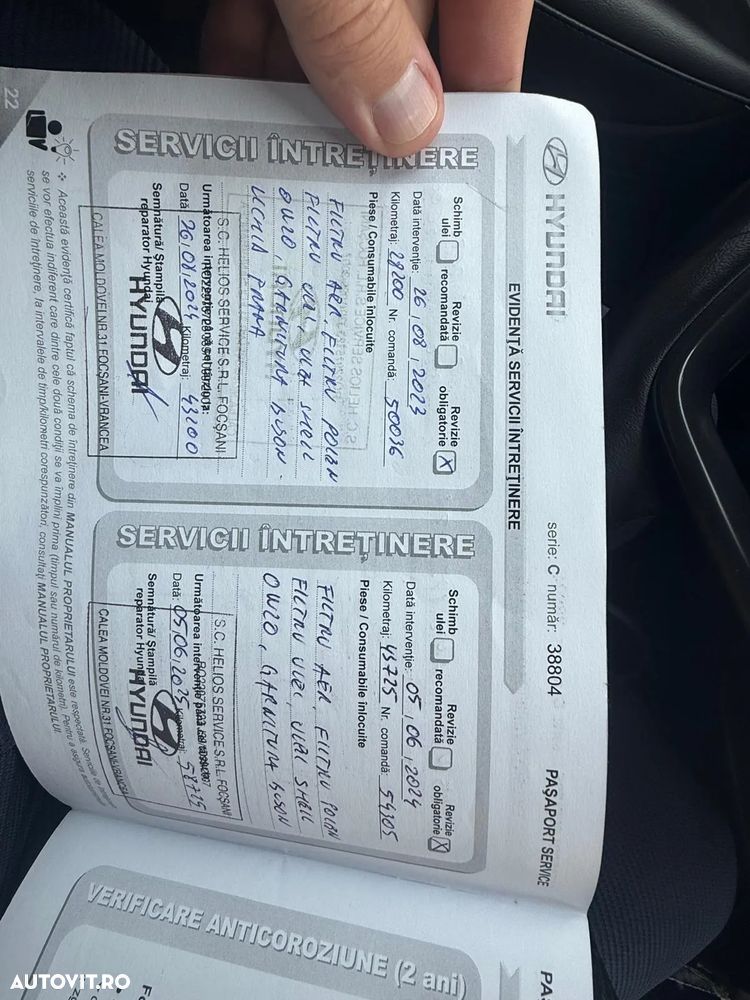 HYUNDAI
serie: C număr: 38804
PAŞAPORT SERVICE
EVIDENŢĂ SERVICII ÎNTREŢINERE
SERVICII ÎNTREŢINERE
Schimb ulei
Revizie recomandată
Revizie obligatorie X
Dată intervenţie: 26, 08, 2023
Kilometraj: 28200 Nr. comandă: 50036
Piese / Consumabile înlocuite
FILTRU AER, FILTRU POLEN
FILTRU ULEI, ULEI SHELL
0W20, GARNITURA BUSON.
S.C. HELIOS SERVICE S.R.L. FOCŞANI
Următoarea intervenţie până la
Dată: 26, 08, 2024 Kilometraj: 43200
Semnătură/ Ştampilă
reparator Hyundai
HYUNDAI
CALEA MOLDOVEI NR.31 FOCŞANI-VRANCEA
SERVICII ÎNTREŢINERE
Schimb ulei
Revizie recomandată
Revizie obligatorie X
Dată intervenţie: 05, 06, 2024
Kilometraj: 43725 Nr. comandă: 54305
Piese / Consumabile înlocuite
FILTRU AER, FILTRU POLEN
FILTRU ULEI, ULEI SHELL
0W20, GARNITURA BUSON
S.C. HELIOS SERVICE S.R.L. FOCŞANI
Următoarea intervenţie până la
Dată: 05, 06, 2025 Kilometraj: 58725
Semnătură/ Ştampilă
reparator Hyundai
HYUNDAI
CALEA MOLDOVEI NR.31 FOCŞANI-VRANCEA
❖ Această evidenţă certifică faptul că schema de întreţinere din MANUALUL PROPRIETARULUI este respectată. Serviciile de
se vor efectua indiferent care dintre cele două condiţii se va împlini prima (timpul sau numărul de kilometri). Pentru a asigura
serviciile de întreţinere, la intervalele de timp/kilometri corespunzători, consultaţi MANUALUL PROPRIETARULUI.
22
VERIFICARE ANTICOROZIUNE (2 ani)
AUTOVIT.RO